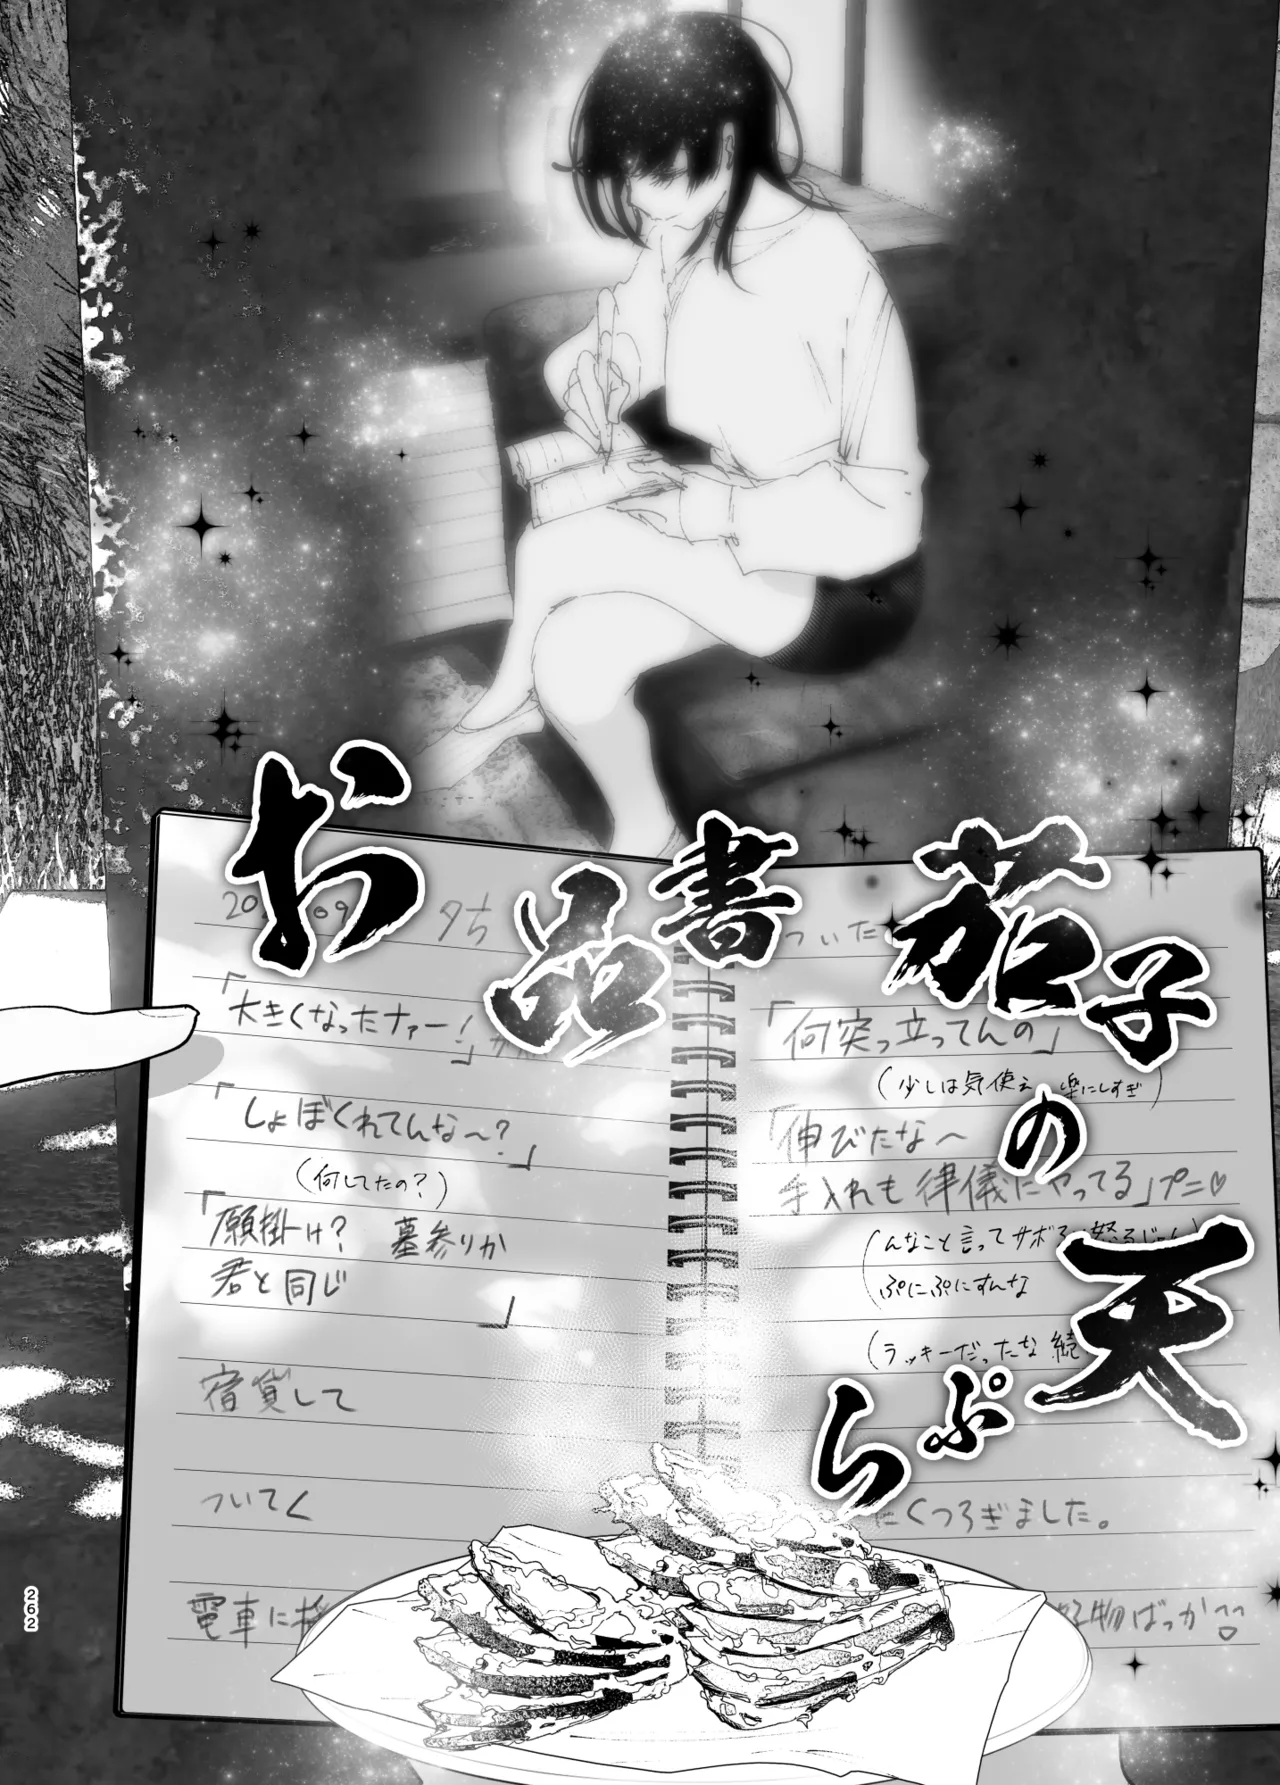 お品書
茄子の天ぷら
夕方
ついた
「大きくなったナァー！」
「しょぼくれてんな〜？」
(何してたの？)
「願掛け？ 墓参りか
君と同じ 」
宿貸して
ついてく
電車に
「何突っ立ってんの」
(少しは気使え 楽にしすぎ)
「伸びたな〜
手入れも律儀にやってる」プニ♡
(んなこと言ってサボ
ぷにぷにすんな
(ラッキーだったな 続
にくつろぎました。
好物ばっか
262